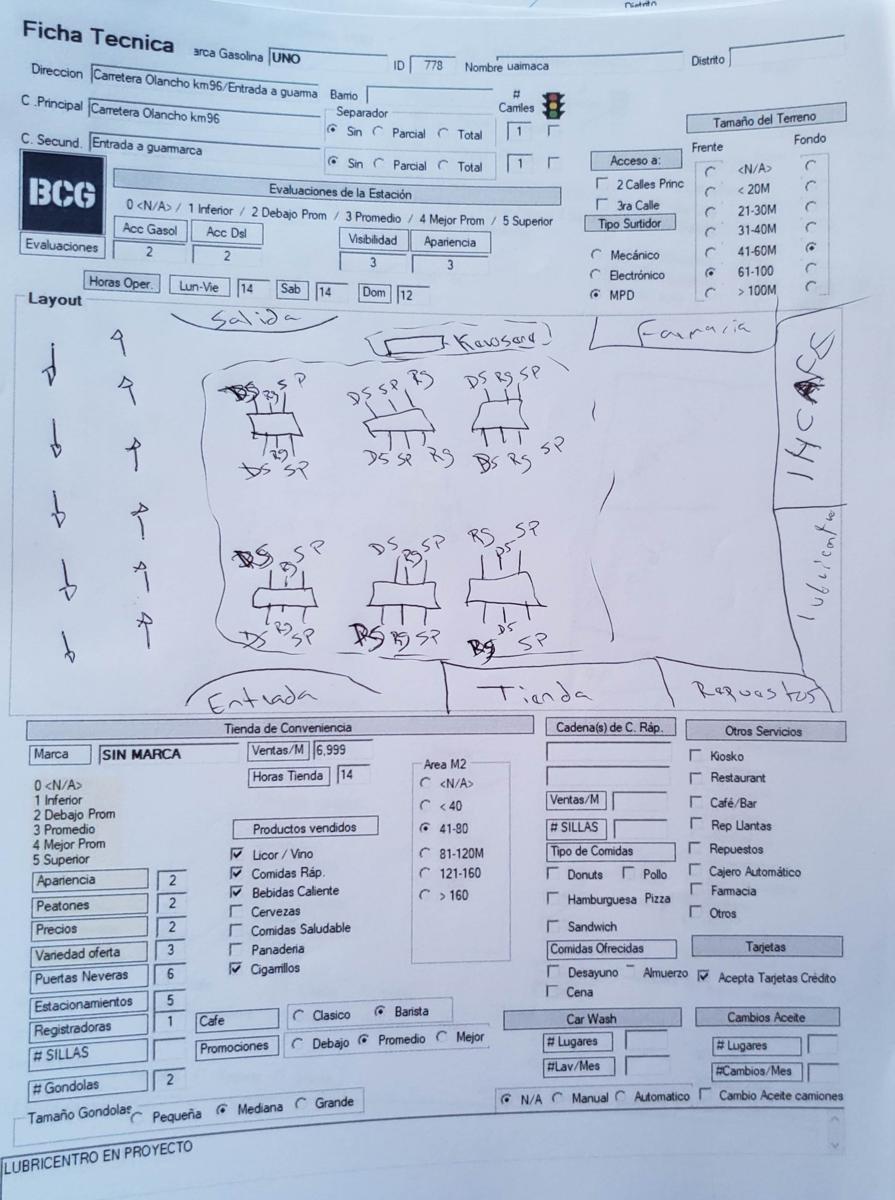 Distrito
Ficha Tecnica
arca Gasolina UNO ID 778 Nombre uaimaca Distrito
Direccion Carretera Olancho km96/Entrada a guarma Barrio
C .Principal Carretera Olancho km96
Separador # Carriles
Sin Parcial Total 1
C. Secund. Entrada a guarmarca
Sin Parcial Total 1
Tamaño del Terreno
Frente Fondo
<N/A>
< 20M
21-30M
31-40M
41-60M
61-100
> 100M
Acceso a:
2 Calles Princ
3ra Calle
Tipo Surtidor
Mecánico
Electrónico
MPD
BCG
Evaluaciones
Evaluaciones de la Estación
0 <N/A> / 1 Inferior / 2 Debajo Prom / 3 Promedio / 4 Mejor Prom / 5 Superior
Acc Gasol Acc Dsl Visibilidad Apariencia
2 2 3 3
Horas Oper. Lun-Vie 14 Sab 14 Dom 12
Layout
Salida Farmacia
DS Rg SP DS SP Rg DS Rg SP
DS Rg SP DS SP Rg DS Rg SP
DS Rg SP DS Rg SP RG DS SP
DS Rg SP DS Rg SP Rg DS SP
Entrada Tienda Repuestos
Tienda de Conveniencia
Marca SIN MARCA Ventas/M 6,999
Horas Tienda 14
0 <N/A>
1 Inferior
2 Debajo Prom
3 Promedio
4 Mejor Prom
5 Superior
Apariencia 2
Peatones 2
Precios 2
Variedad oferta 3
Puertas Neveras 6
Estacionamientos 5
Registradoras 1
# SILLAS
# Gondolas 2
Productos vendidos
Licor / Vino
Comidas Ráp.
Bebidas Caliente
Cervezas
Comidas Saludable
Panaderia
Cigarrillos
Area M2
<N/A>
< 40
41-80
81-120M
121-160
> 160
Cafe Clasico Barista
Promociones Debajo Promedio Mejor
Tamaño Gondolas Pequeña Mediana Grande
Cadena(s) de C. Ráp.
Ventas/M
# SILLAS
Tipo de Comidas
Donuts Pollo
Hamburguesa Pizza
Sandwich
Comidas Ofrecidas
Desayuno Almuerzo
Cena
Otros Servicios
Kiosko
Restaurant
Café/Bar
Rep Llantas
Repuestos
Cajero Automático
Farmacia
Otros
Tarjetas
Acepta Tarjetas Crédito
Car Wash
# Lugares
#Lav/Mes
N/A Manual Automatico
Cambios Aceite
# Lugares
#Cambios/Mes
Cambio Aceite camiones
LUBRICENTRO EN PROYECTO